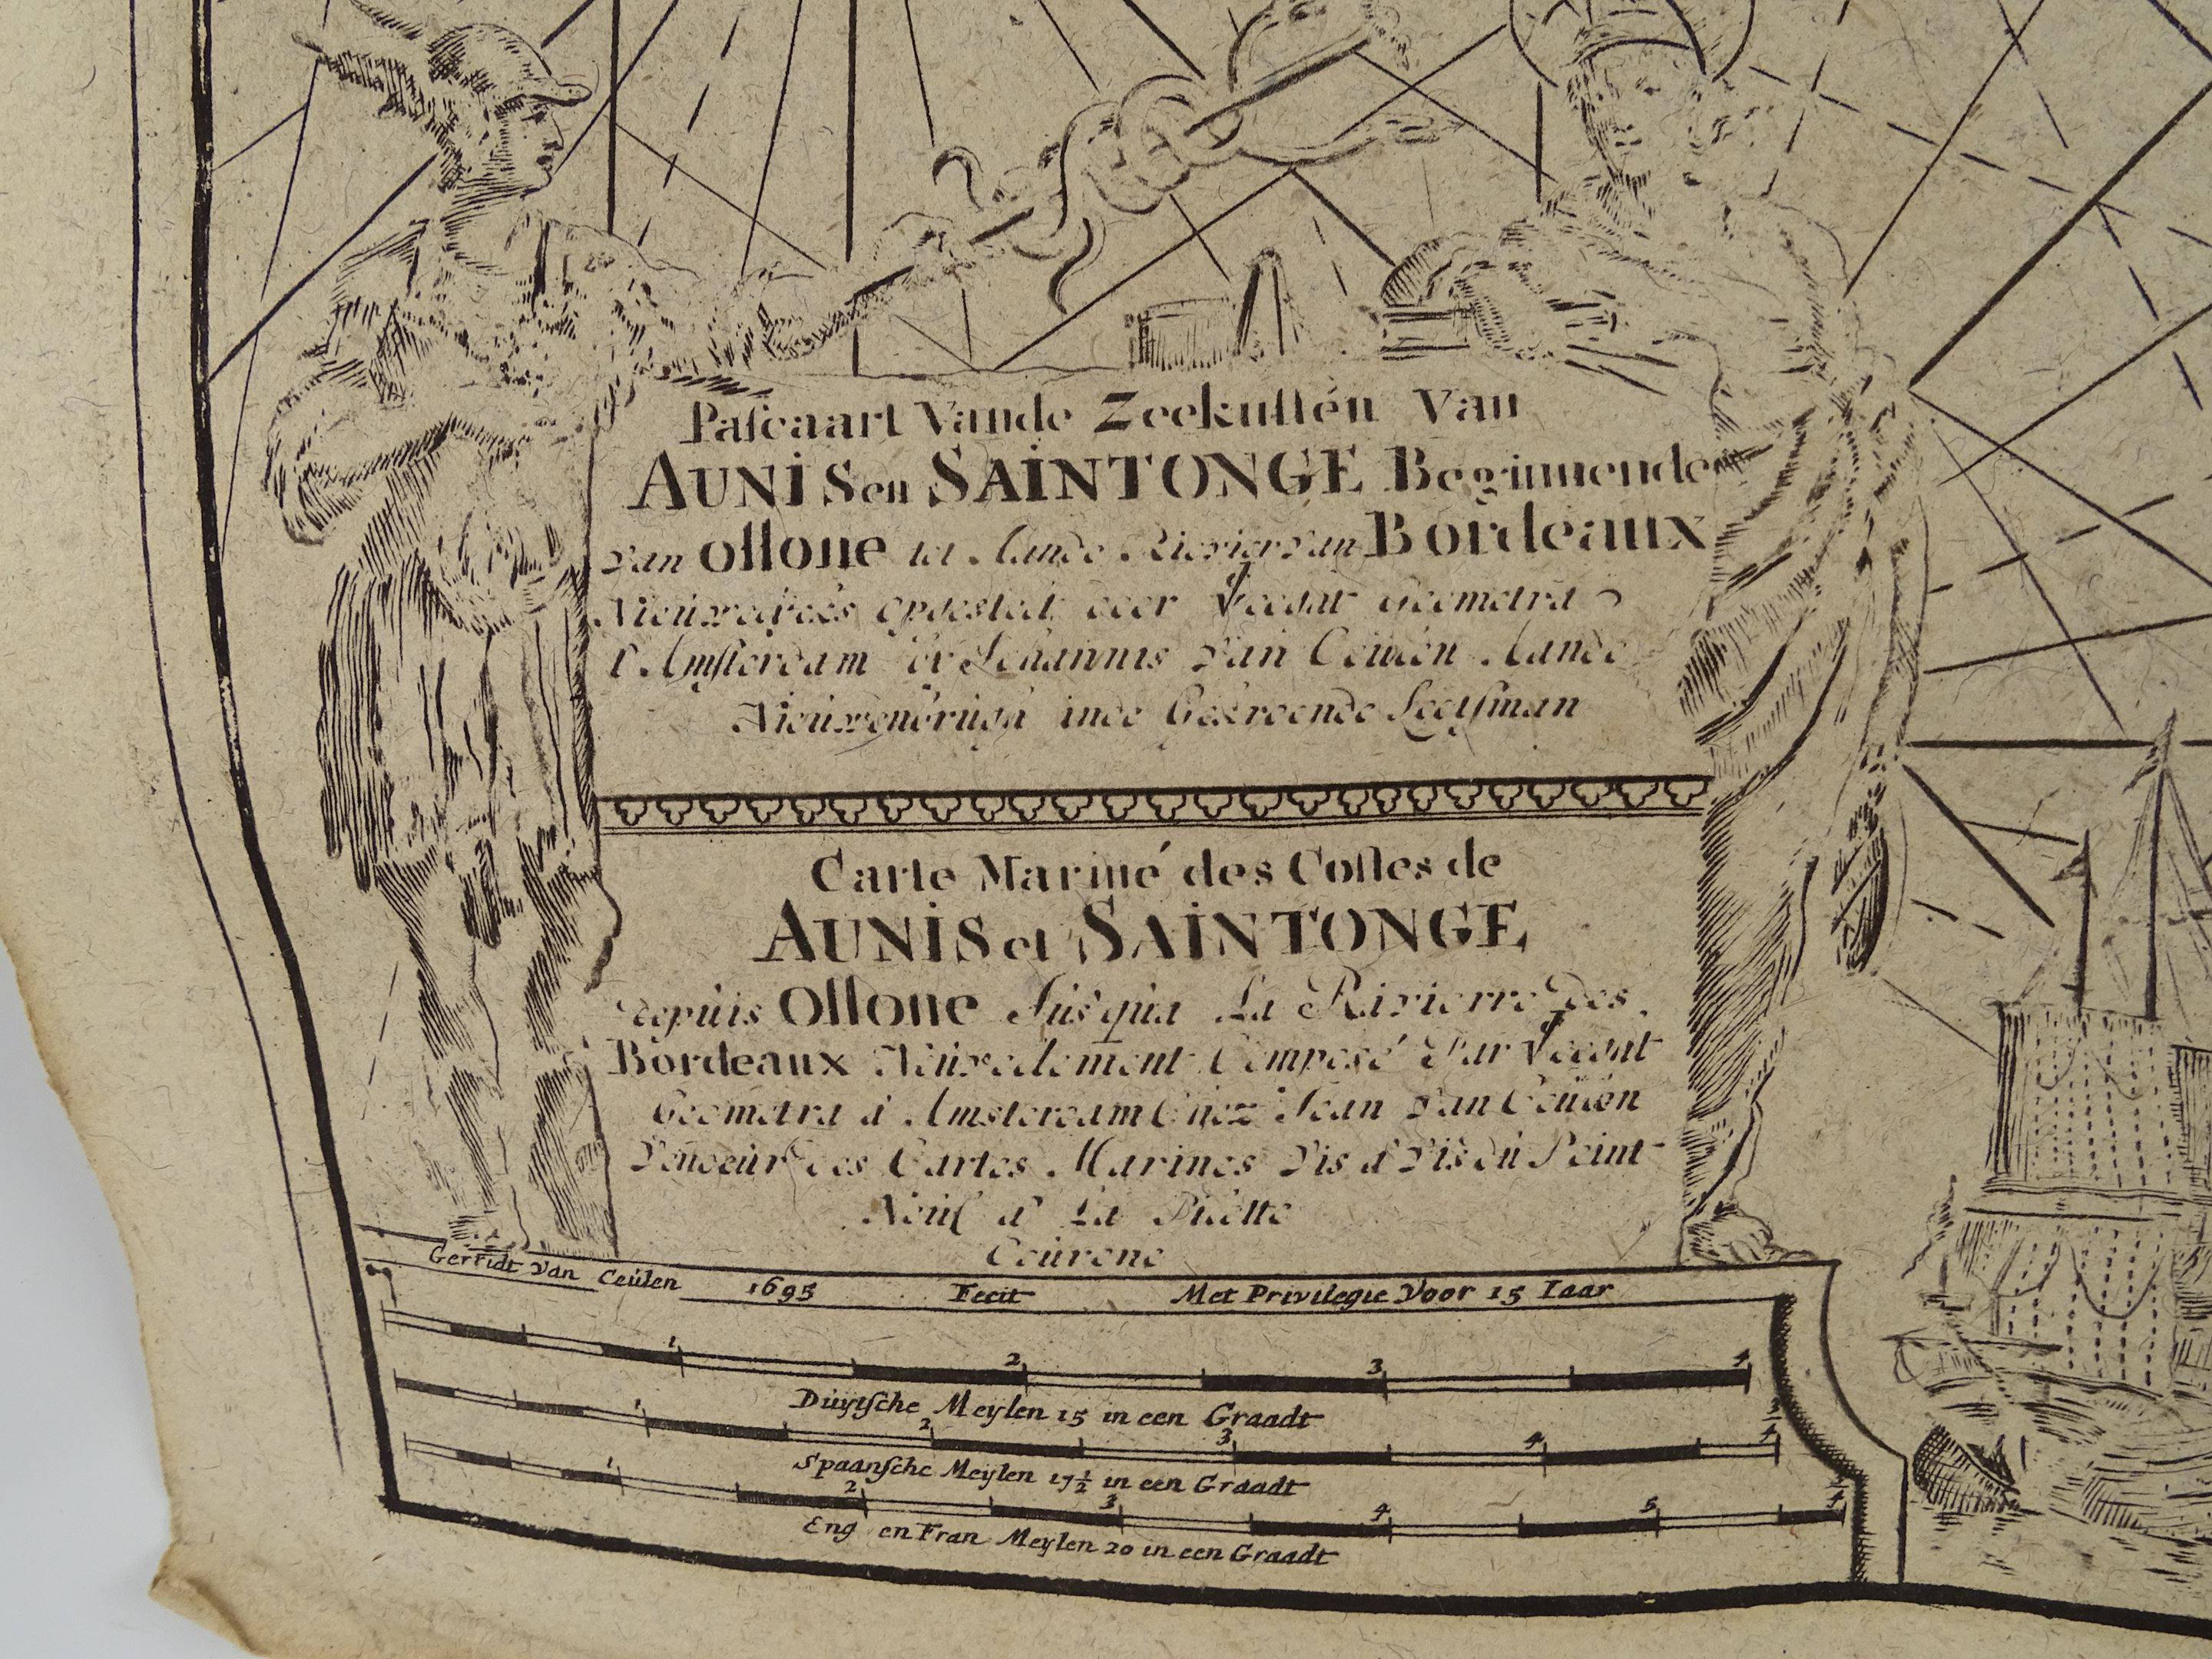 Paſcaart Vande Zeekuſtén Van
AUNIS en SAINTONGE Beginnende
Van Oſſone tot Aande Rievier Van Bordeaux
Nieuwelycks opgestelt door Geometra
t'Amſterdam by Iohannis Van Ceulen Aande
Nieuwenbrugh inde Gekroonde Lootſman
Carte Mariné des Coſtes de
AUNIS et SAINTONGE
depuis Oſſone Jus'qua La Rivierre Des
Bordeaux Neuvelement Composé Par
Geometra a Amsterdam Chez Jean Van Ceulen
Vendeur des Cartes Marines Vis a Vis du Point
Neuf a La Pilotte
Courone
Gerridt Van Ceulen 1695 Fecit Met Privilegie Voor 15 Iaar
1 2 3 4
Duytſche Meylen 15 in een Graadt
1 2 3 4
Spaanſche Meylen 17½ in een Graadt
1 2 3 4 5
Eng en Fran Meylen 20 in een Graadt